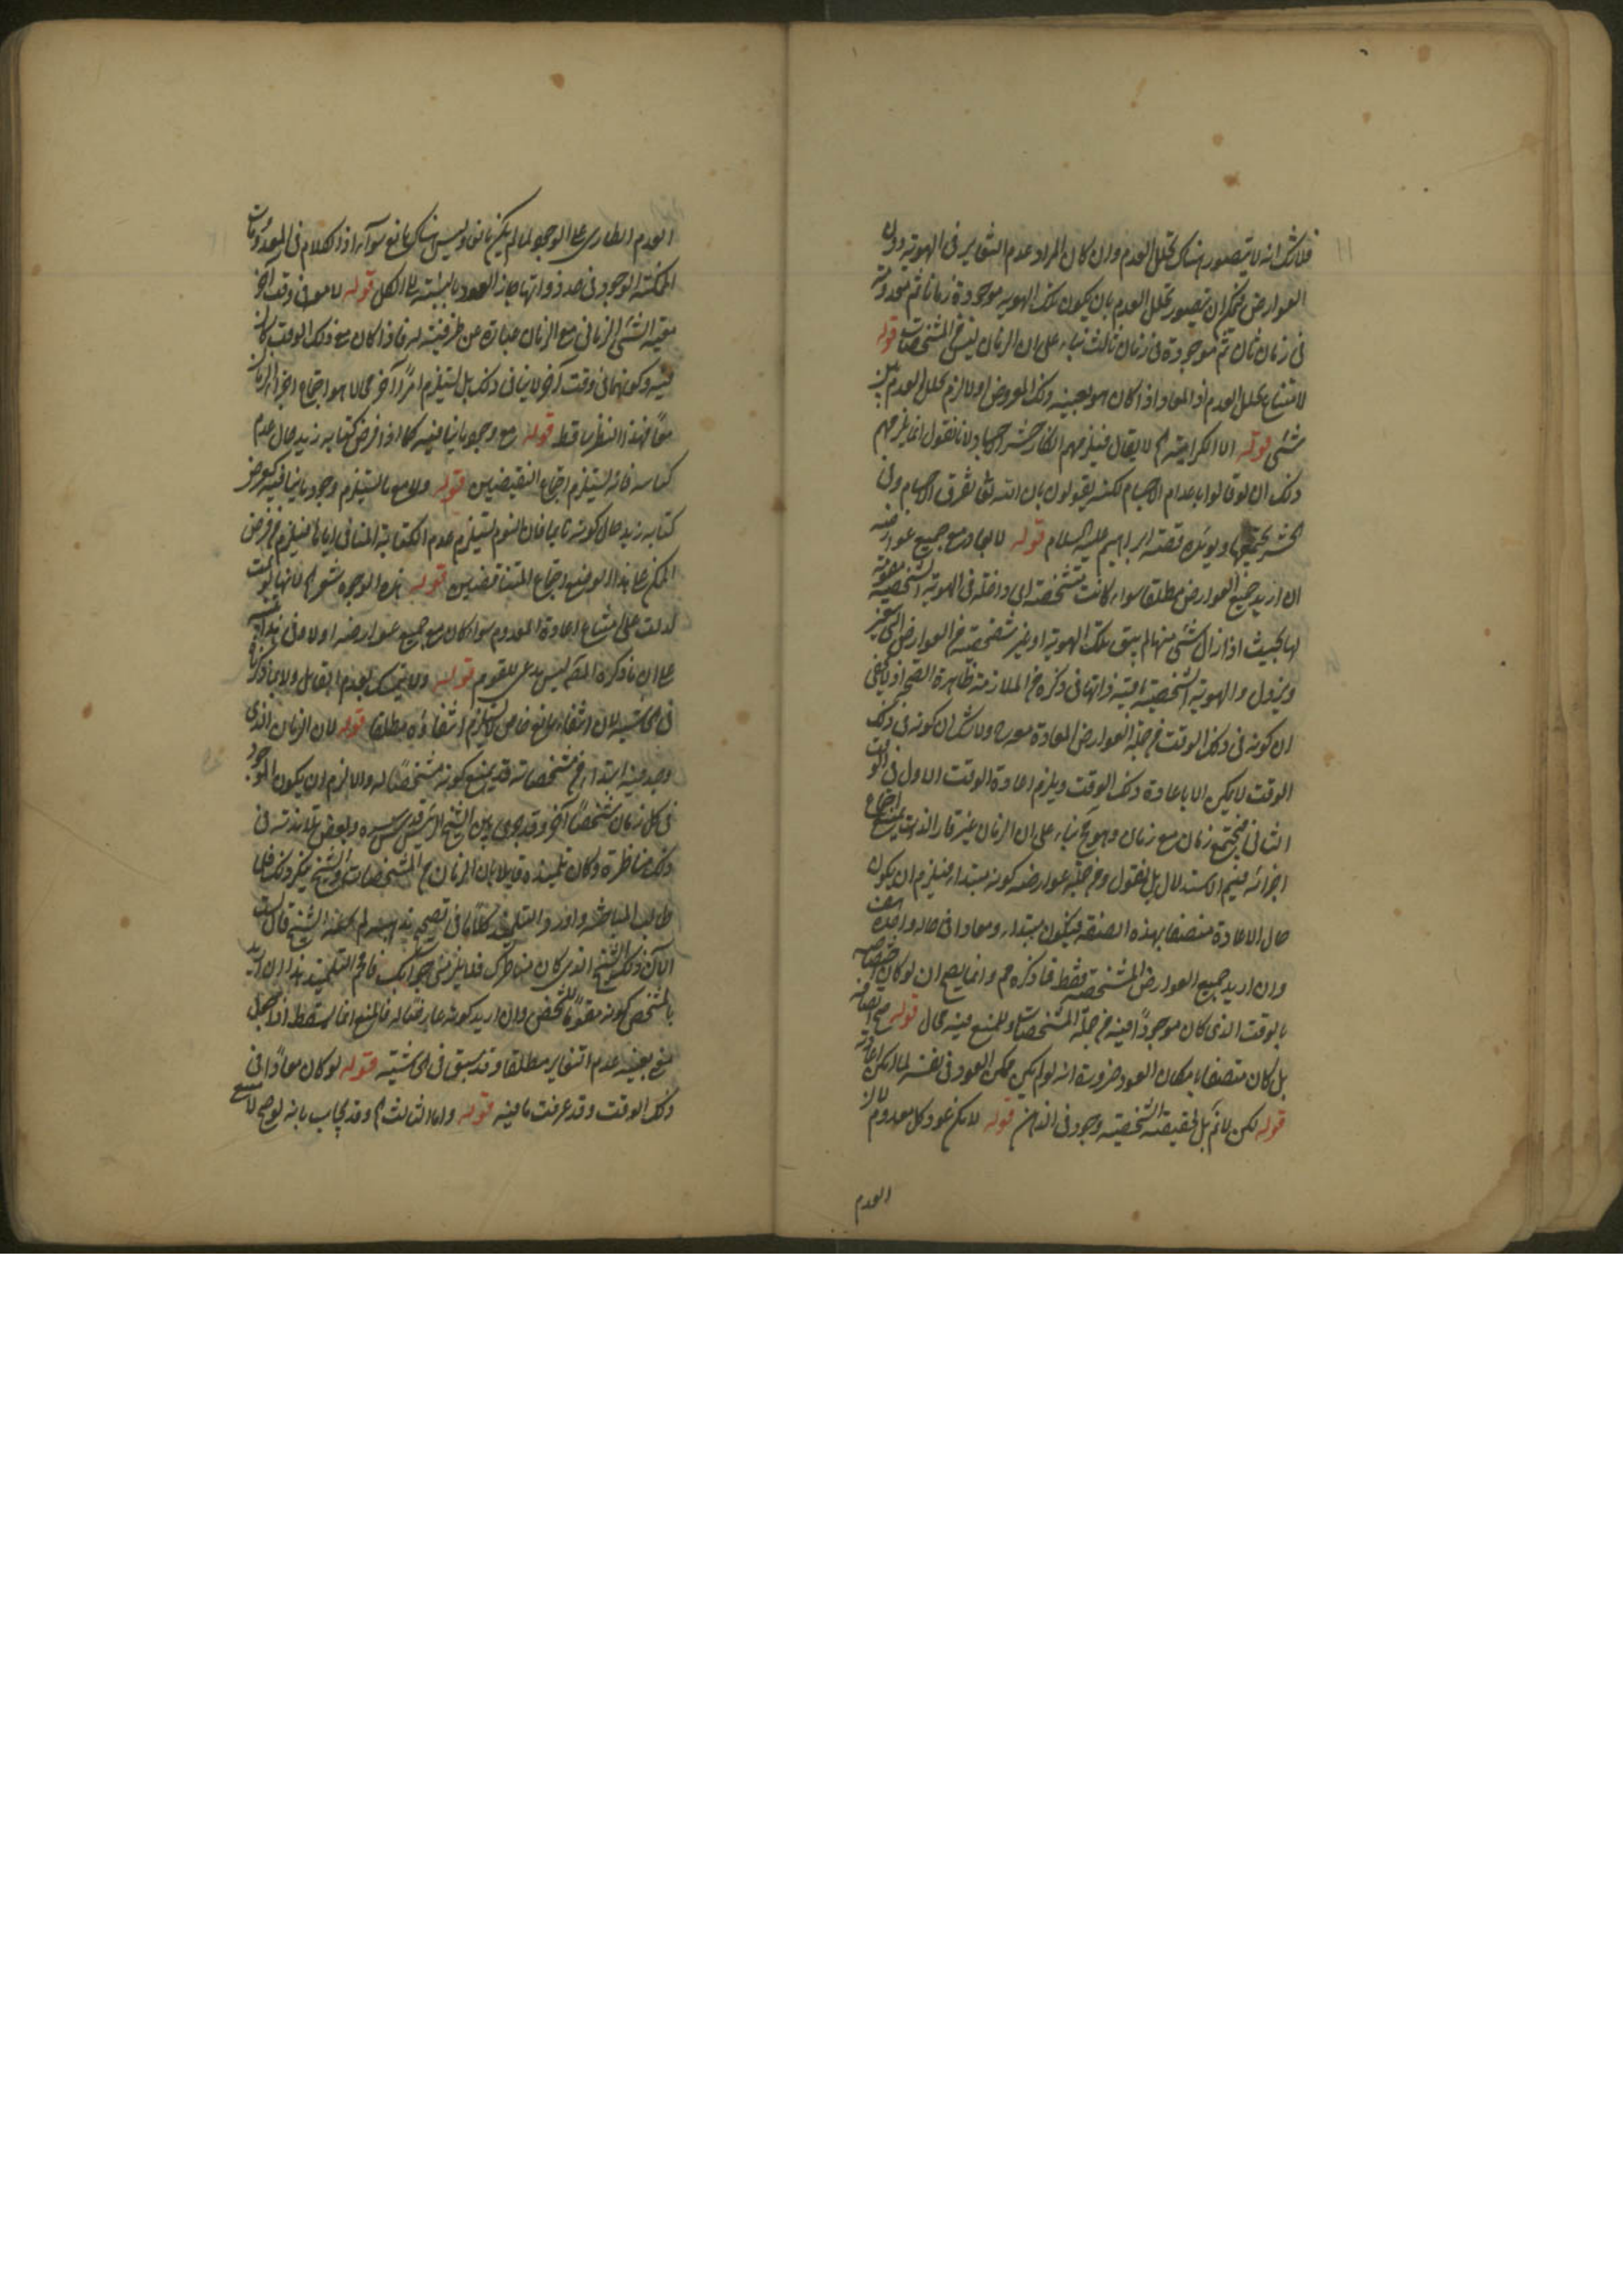 فلا شك انه لا يتصور هناك تخلل العدم وان كان المراد عدم التغاير فى الهوية دون
العوارض فيمكن ان يتصور تخلل العدم بان يكون تلك الهوية موجودة زمانا ثم معدومة
فى زمان ثان ثم موجودة فى زمان ثالث بناء على ان الزمان ليس من المشخصات قوله
لامتناع تخلل العدم اذ المعاد اذا كان هو بعينه ذلك المعروض اولا لزم تخلل العدم بين
شئ قوله اما الكرامية لا يقال فيلزمهم انكار حشر الاجساد لانا نقول انما يلزمهم
ذلك ان لو قالوا باعدام الاجسام لكنهم يقولون بان الله تعالى يفرق الاجسام وفى
الحشر يجمعها ويؤيده قصة ابراهيم عليه السلام قوله لا يعاد مع جميع عوارضه
ان اريد جميع العوارض مطلقا سواء كانت مشخصة اى داخلة فى الهوية الشخصية مقومة
لها بحيث اذا زال شئ منها لم يبق تلك الهوية او غير مشخصة من العوارض التى يتغير
ويزول والهوية الشخصية باقية بذاتها فما ذكره من الملازمة ظاهرة الصحة اذ يكفى
ان كونه فى ذلك الوقت من جملة العوارض المعادة معه ولا شك ان كونه فى ذلك
الوقت لا يمكن الا باعادة ذلك الوقت ويلزم اعادة الوقت الاول فى الوقت
الثانى فيجتمع زمان مع زمان وهو مح بناء على ان الزمان غير قار الذات يمتنع اجتماع
اجزائه فيتم الاستدلال بل نقول ومن جملة عوارضه كونه مبتدأ فيلزم ان يكون
حال الاعادة متصفا بهذه الصفة فيكون مبتداء ومعادا فى حالة واحدة هف
وان اريد جميع العوارض المشخصة فقط فما ذكره مم وانما يصح ان لو كان اختصاصه
بالوقت الذى كان موجودا فيه من جملة المشخصات وللمنع فيه مجال قوله صح اتصافه
بل كان متصفا بامكان العود ضرورة انه لو لم يكن ممكن العود فى نفسه لما امكن اعادته
قوله لكن لا نم بل لحقيقته الشخصية وجود فى الذهن قوله لامكن عود كل معدوم لان
العدم
العدم الطارى على الوجود لما لم يكن مانعا وليس هناك مانع سواه اذ الكلام فى المعدومات
الممكنة الوجود فى حد ذواتها جاز العود بالنسبة الى الكل قوله لا معه فى وقت آخر
معية الشئ الزمانى مع الزمان عبارة عن ظرفيته له فاذا كان مع ذلك الوقت كان
فيه وكونهما فى وقت آخر لا ينافى ذلك بل يستلزم امرا آخر محالا هو اجتماع اجزاء الزمان
معا فهذا النظر ساقط قوله مع وجود ما ينافيه كما اذا فرض كتابه زيد حال عدم
كتابته فانه يستلزم اجتماع النقيضين قوله ولا مع ما يستلزم وجود ما ينافيه كفرض
كتابه زيد حال كونه نائما فان النوم يستلزم عدم الكتابة المنافى اياها فيلزم من فرض
الممكن على هذا الوضع اجتماع المتناقضين قوله هذه الوجوه مشعر لانها لو تمت
لدلت على امتناع اعادة المعدوم سواء كان مع جميع عوارضه او لا وفى هذا تنبيه
على ان ما ذكره المص ليس مدعى للقوم قوله ولا يتمسك بعدم التعقل ولا بما ذكرنا
فى الحاشية لان انتفاء مانع خاص لا يستلزم انتفاؤه مطلقا قوله لان الزمان الذى
وجد فيه ابتداء من مشخصاته قد يمنع كونه مشخصا له والا لزم ان يكون الموجود
فى كل زمان شخصا آخر وقد جرى بين الشيخ الرئيس قدس سره وبعض تلامذته فى
ذلك مناظرة وكان تلميذه قائلا بان الزمان من المشخصات والشيخ ينكر ذلك فلما
طالت المباحثة واورد التلميذ كلاما فى تصحيح مذهبه لم يجبه الشيخ قال لست
الآن ذلك الشيخ الذى كان مناظرك فلا يلزمنى جوابك فافحم التلميذ هذا ان اريد
بالمشخص كونه مقوما للشخص وان اريد كونه عارضا له فالمنع انما يسقط اذا حمل
منع بعينه عدم التغاير مطلقا وقد سبق فى الحاشية قوله لو كان معادا فى
ذلك الوقت وقد عرفت ما فيه قوله واما الثالث وقد يجاب بانه لو صح لامتنع